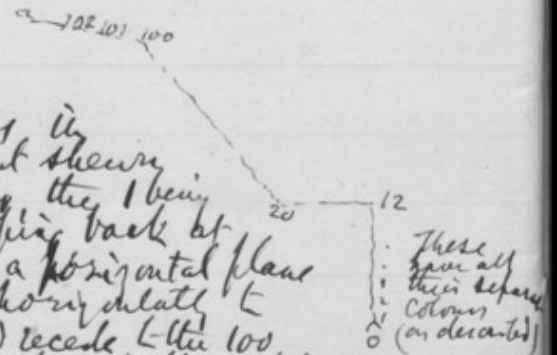 102 101 100
in
shewn
the 1 being
back at
a horizontal plane
horizontally to
recede to the 100
20
12
0
These
have all
their separate
colours
(as described)